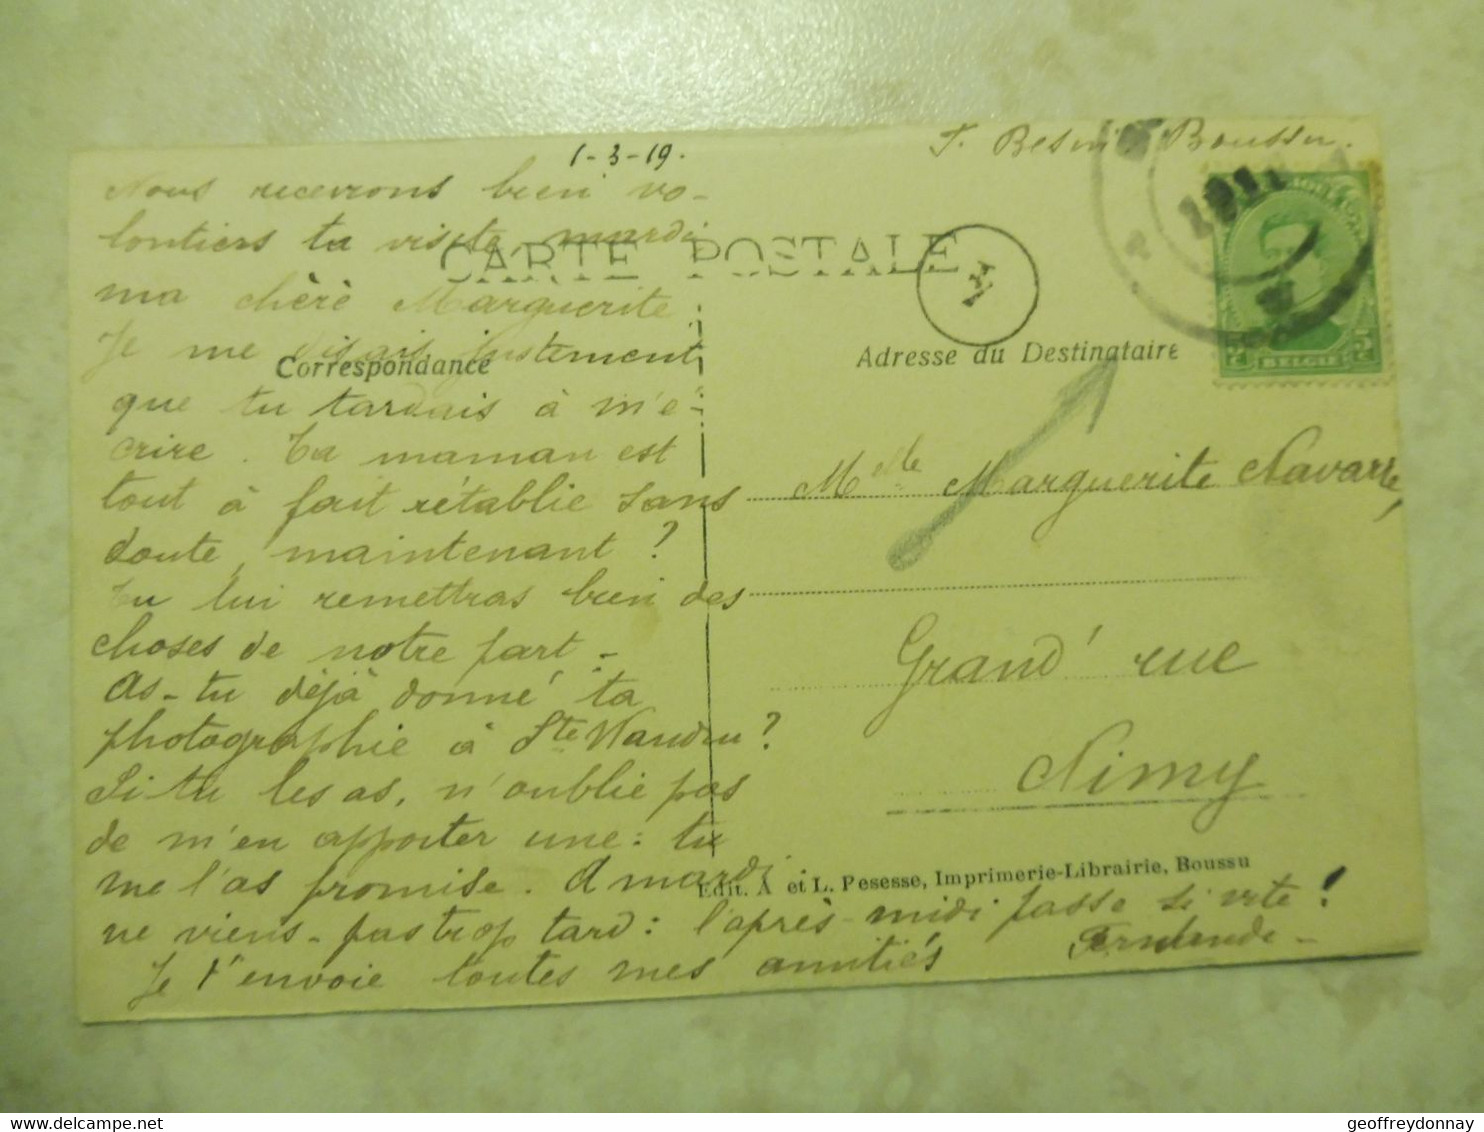 1-3-19.
Nous recevrons bien vo-
lontiers ta visite mardi
ma chère Marguerite.
Je me disais justement
que tu tardais à m'é-
crire. Ta maman est
tout à fait rétablie sans
doute, maintenant ?
Tu lui remettras bien des
choses de notre part -
As-tu déjà donné ta
photographie à Ste Waudru ?
Si tu les as, n'oublie pas
de m'en apporter une : tu
me l'as promise. A mardi
ne viens-pas trop tard : l'après-midi passe si vite !
Je t'envoie toutes mes amitiés Fernande -
CARTE POSTALE
Correspondance
F. Boussu.
Adresse du Destinataire
BELGIE
Melle Marguerite Navarre,
Grand' rue
Nimy
Edit. A et L. Pesesse, Imprimerie-Librairie, Boussu
geoffreydonnay